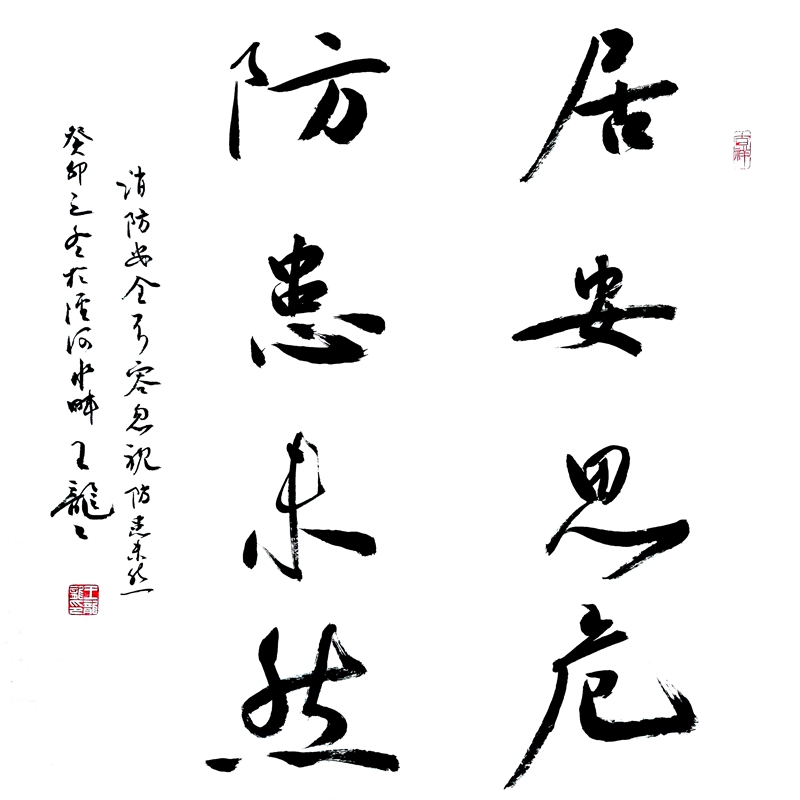 居安思危
防患未然
消防安全不容忽视防患未然
癸卯冬於河水畔王龍
吉祥
王龍